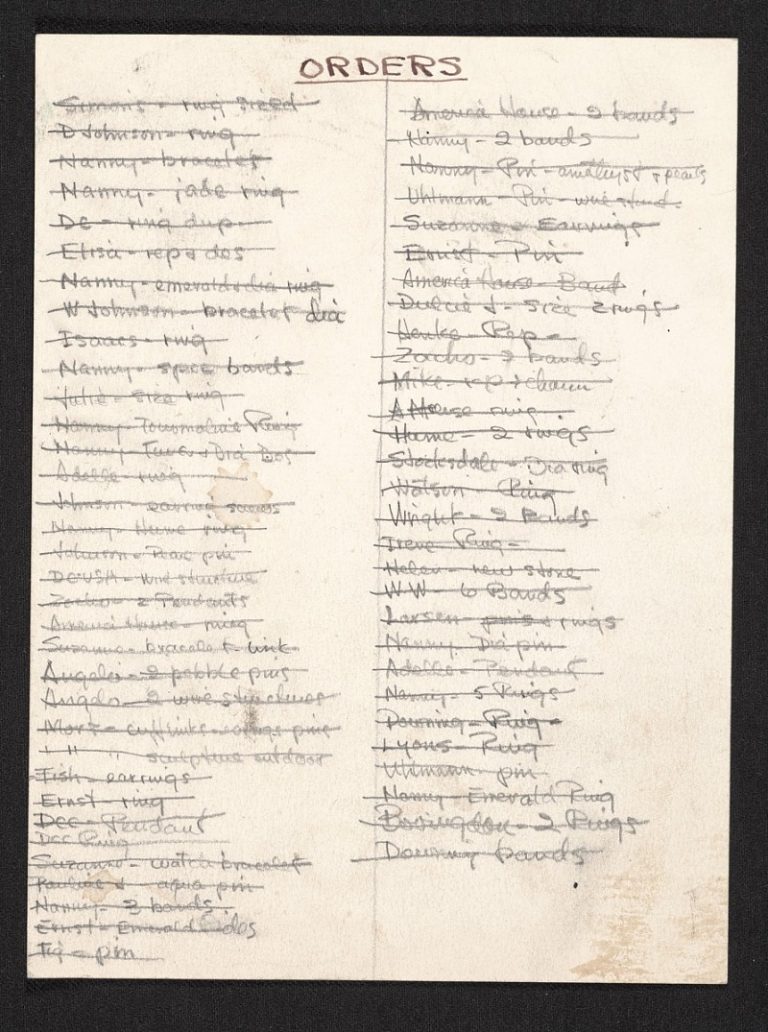 ORDERS
Simons - ring sized
D Johnson - ring
Nanny - bracelet
Nanny - jade ring
De - ring dup.
Elisa - rep
Nanny - emerald + dia ring
W Johnson - bracelet dia
Isaacs - ring
Nanny - bands
Julie - size ring
Nanny - Tourmaline Ring
Nanny - Dia
Adelle - ring
Johnson - earring
Nanny - Hume ring
Johnson - pin
DCUSA - wire structure
Zacho - 2 Pendants
America House - ring
Suzanne - bracelet - link
Angelo - 2 pebble pins
Angelo - 2 wire structures
Mort - cufflinks - pins
" " sculpture outdoor
Fish - earrings
Ernst - ring
Dee - Pendant
Dee Ring
Suzanne - watch bracelet
Pauline J - aqua pin
Nanny - 3 bands
Ernst - Emerald
Fig - pin
America House - 2 bands
Nanny - 2 bands
Nanny - Pin - amethyst + pearls
Uhlmann - Pin - wire
Suzanne - Earrings
Ernst - Pin
America House - Band
Dulcie J - size 2 rings
Rep -
Zacho - 2 bands
Mike - rep + chain
A House ring
Hume - 2 rings
Stocksdale - Dia ring
Watson - Ring
Wright - 2 Bands
Irene Ring -
Helen - new stone
W W - 6 Bands
Larsen - pins + rings
Nanny Dia pin
Adelle - Pendant
Nanny - 5 Rings
Downing - Ring -
Lyons - Ring
Uhlmann pin
Nanny - Emerald Ring
2 Rings
Downing bands